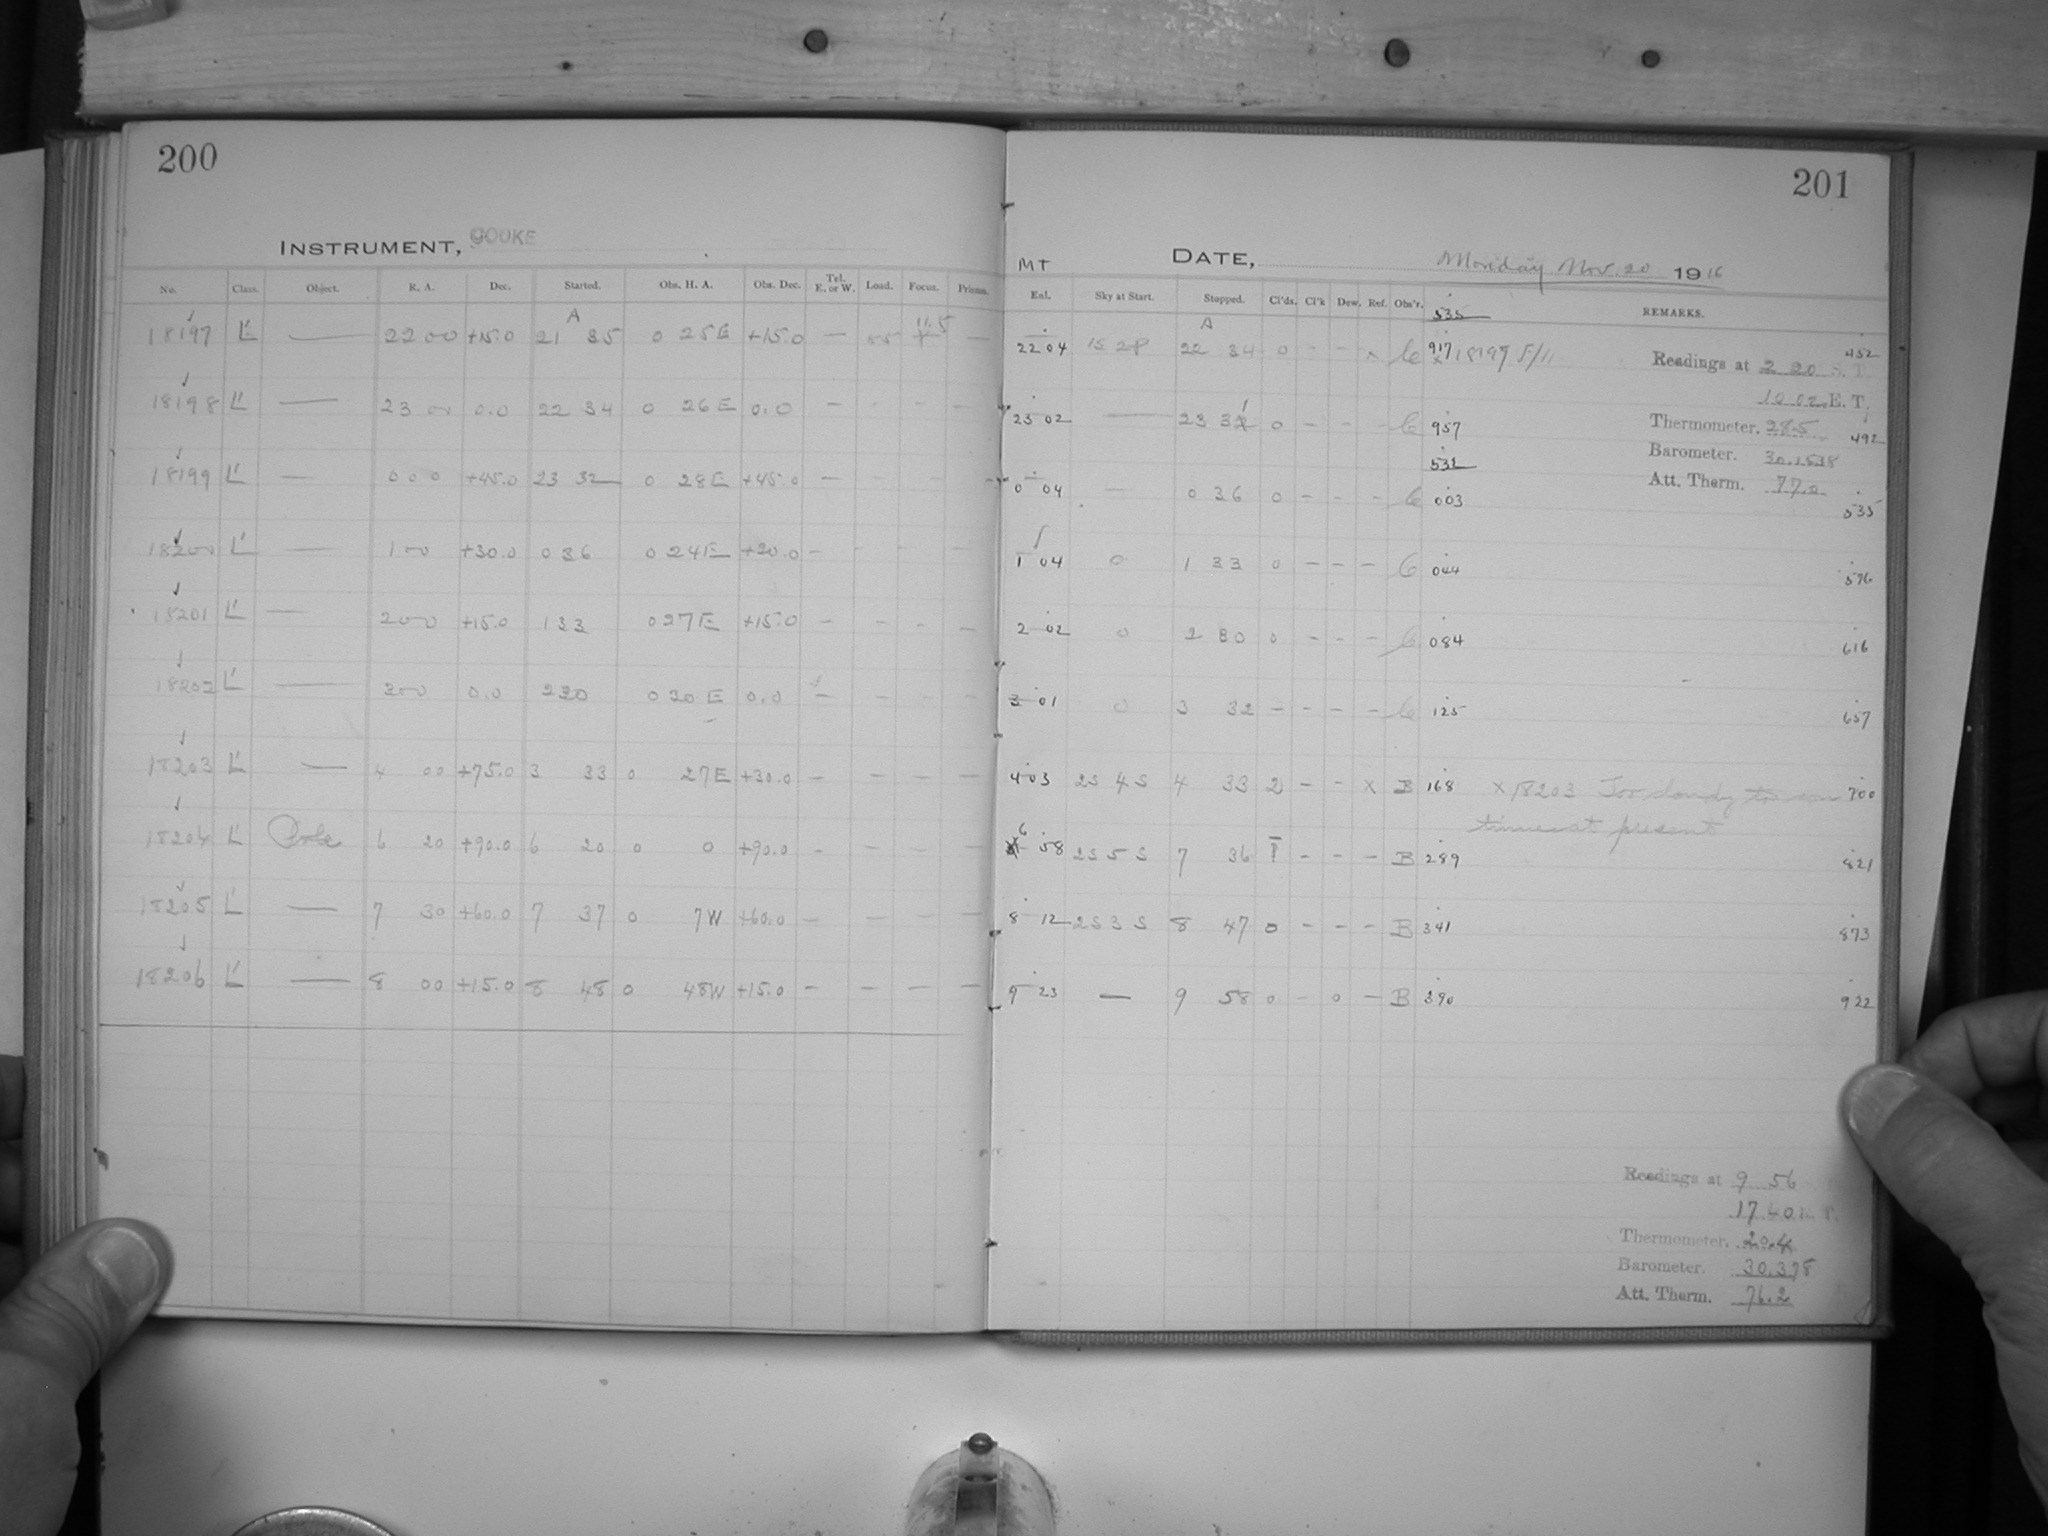 200
INSTRUMENT, COOKE
No. Class. Object. R. A. Dec. Started. Obs. H. A. Obs. Dec. Tel. E. or W. Load. Focus. Prisms.
A
18197 L' — 22 00 +15.0 21 35 0 25 E +15.0 — 11.5 —
18198 L' — 23 00 0.0 22 34 0 26 E 0.0 — - — —
18199 L' — 0 0 0 +45.0 23 32 0 28 E +45.0 — — —
18200 L' — 1 00 +30.0 0 36 0 24 E +30.0 — - — —
18201 L' — 2 00 +15.0 1 33 0 27 E +15.0 — — — —
18202 L' — 3 00 0.0 2 30 0 30 E 0.0 — — — —
18203 L' — 4 00 +75.0 3 33 0 27 E +30.0 — — — —
18204 L' Pole 6 20 +90.0 6 20 0 0 +90.0 — — — —
18205 L' — 7 30 +60.0 7 37 0 7 W +60.0 — — — —
18206 L' — 8 00 +15.0 8 48 0 48 W +15.0 — — — —
201
MT
DATE, Monday Nov. 20 1916
Enl. Sky at Start. Stopped. Cl'ds. Cl'k Dew. Ref. Obs'r. REMARKS.
535
A
22 04 1S 2P 22 34 0 - - x C 917 x 18197 F/11 452
23 02 — 23 32 0 - - - C 957 492
532
0 04 — 0 36 0 - - - C 003 535
1 04 0 1 33 0 - - - C 044 576
2 02 0 2 30 0 - - - C 084 616
3 01 0 3 32 - - - - C 125 657
4 03 2S 4S 4 33 2 - - x B 168 x 18203 Too cloudy 700
at present
6 58 2S 5S 7 36 1 - - - B 289 821
8 12 2S 3S 8 47 0 - - - B 341 873
9 23 — 9 58 0 - 0 - B 390 922
Readings at 2 20 S. T.
10 02 E. T.
Thermometer. 28.5
Barometer. 30.1538
Att. Therm. 77.0
Readings at 9 56
17 40 E. T.
Thermometer. 20.4
Barometer. 30.378
Att. Therm. 76.2